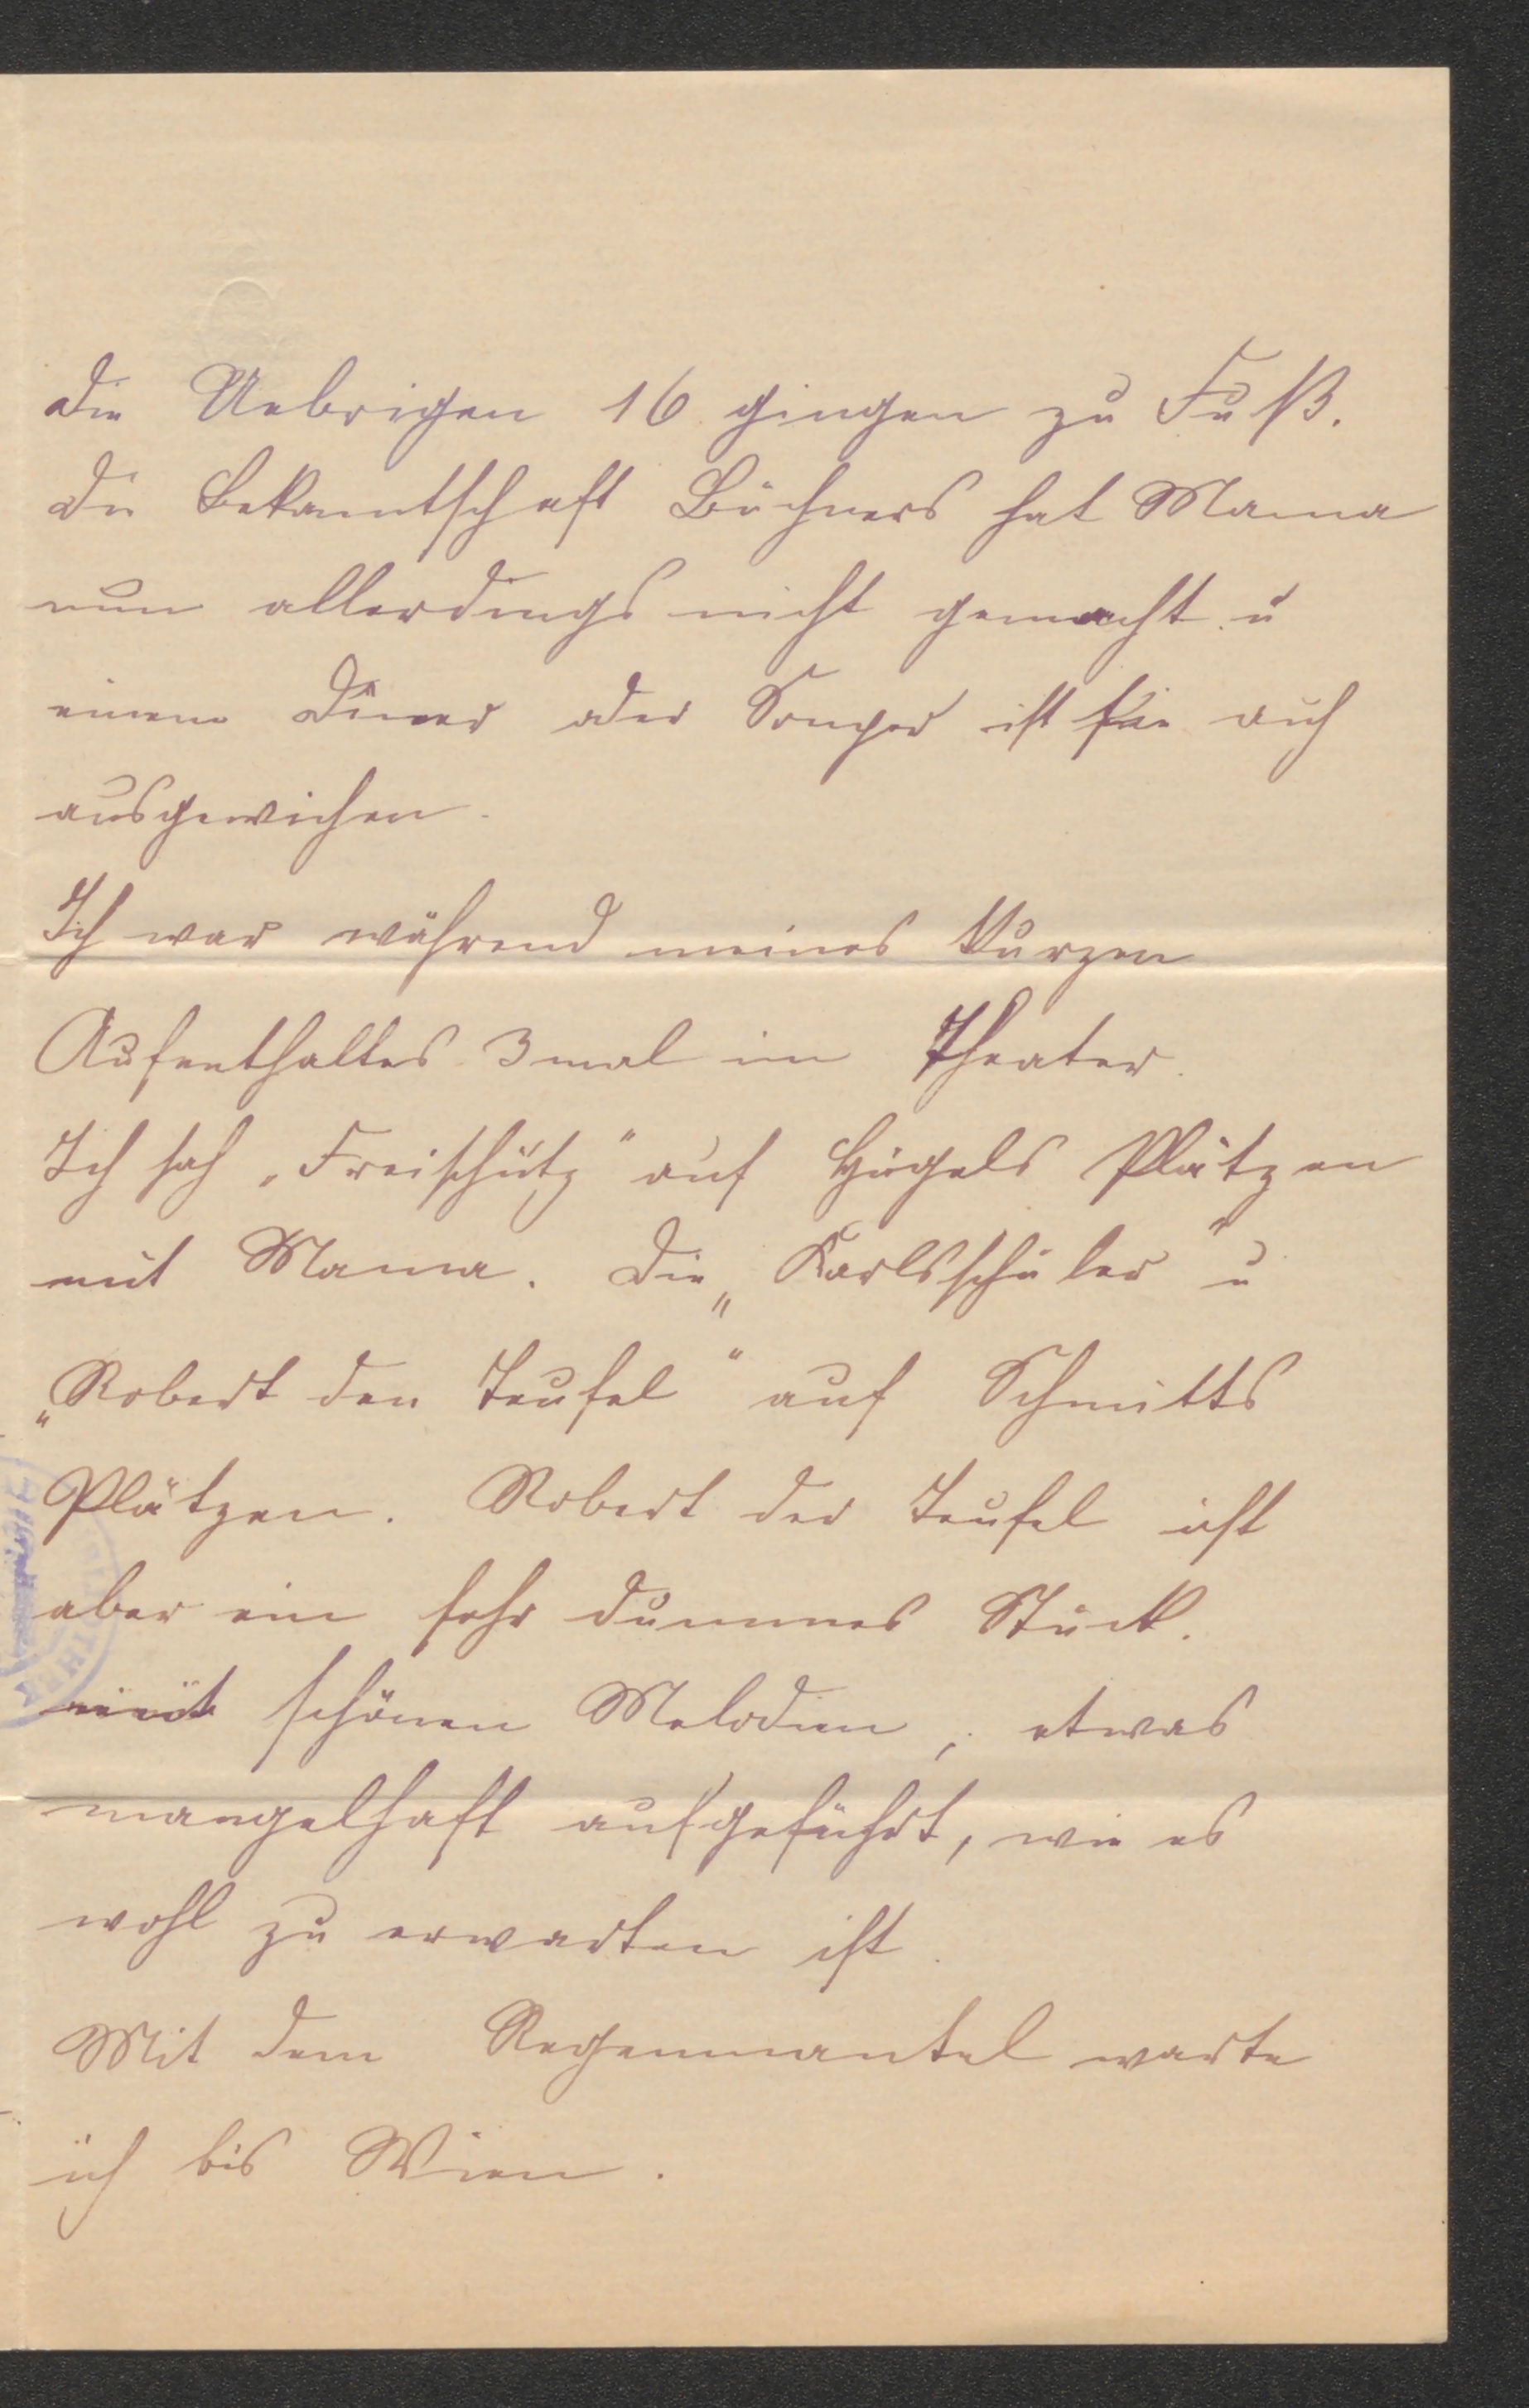 Die Uebrigen 16 gingen zu Fuß.
Die Bekanntschaft Büchners hat Mama
nun allerdings nicht gemacht u
einem Diner oder Souper ist sie auch
ausgewichen.
Ich war während meines kurzen
Aufenthaltes 3 mal im Theater.
Ich sah „Freischütz" auf Hügels Plätzen
mit Mama. Die „Karlsschüler" u
„Robert den Teufel" auf Schmitts
Plätzen. Robert der Teufel ist
aber ein sehr dummes Stück.
mit schönen Melodien, etwas
mangelhaft aufgeführt, wie es
wohl zu erwarten ist.
Mit dem Regenmantel warte
ich bis Wien.